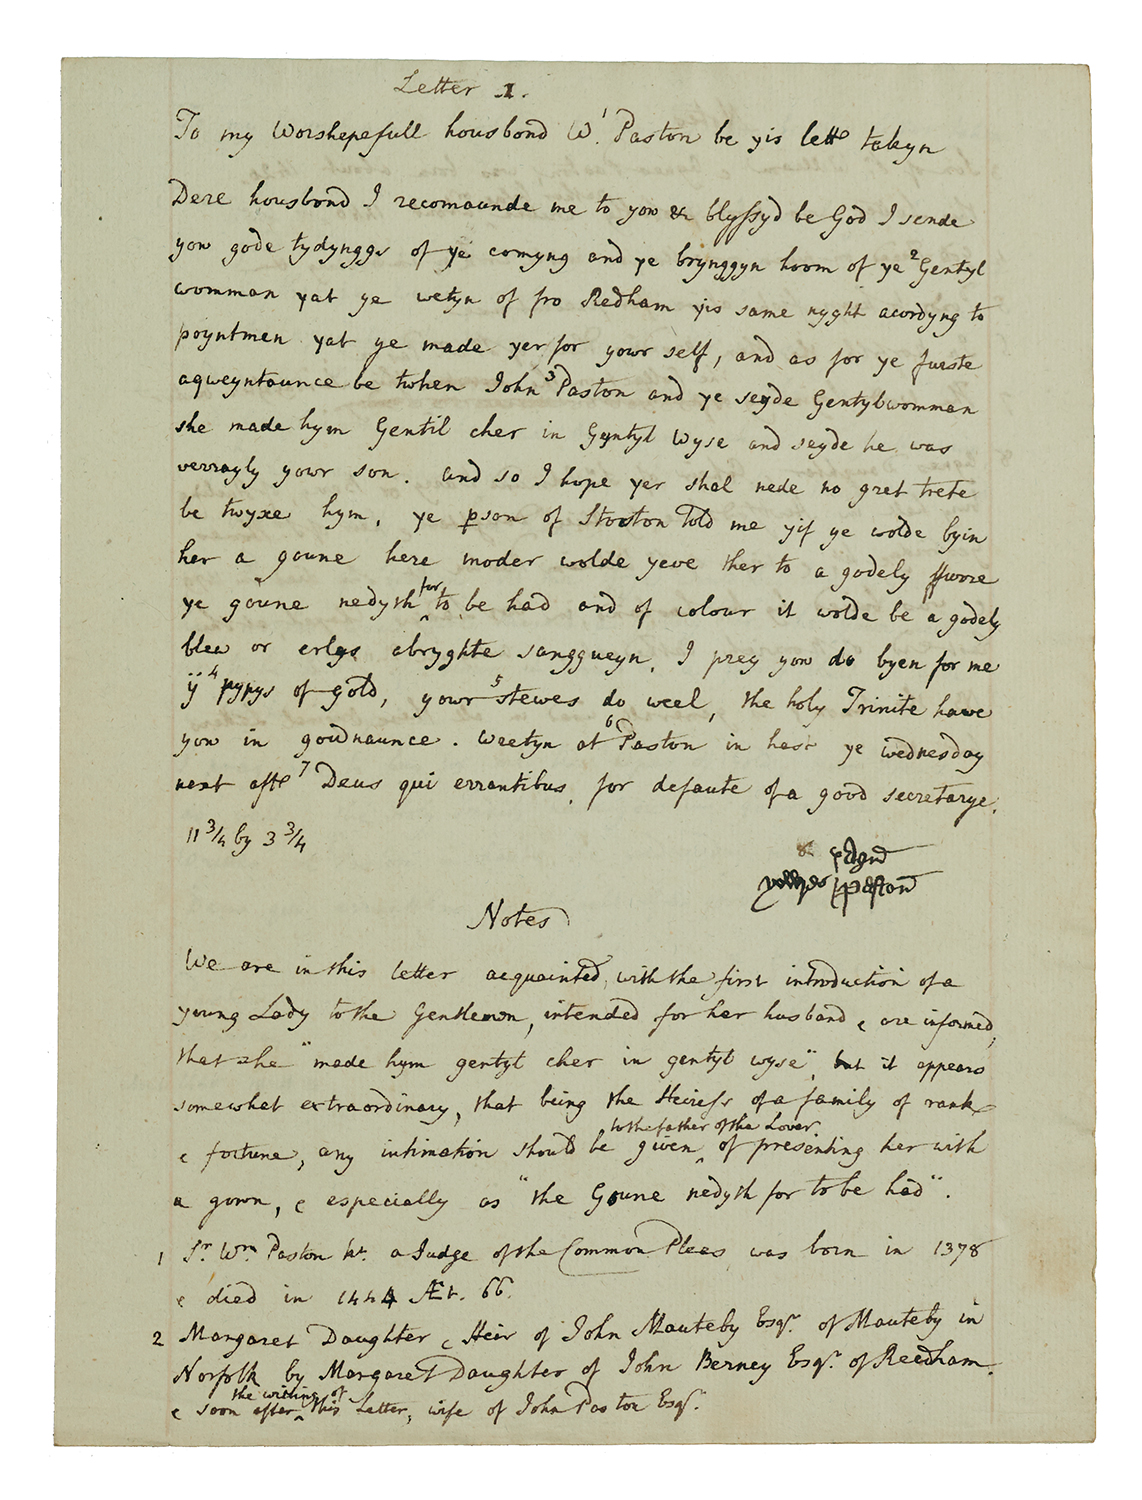 Letter 1.
To my Worshepefull housbond W.¹ Paston be yis lettᵉ takyn
Dere housbond I recomaunde me to yow & blyssyd be God I sende
yow gode tydynggs of ye comyng and ye brynggyn hoom of ye ²Gentyl
womman yat ye wetyn of fro Redham yis same nyght acordyng to
poyntmen yat ye made yer for yowr self, and as for ye furste
aqweyntaunce be twhen John ³Paston and ye seyde Gentylwomman
she made hym Gentil cher in Gyntyl wyse and seyde he was
verrayly yowr son. and so I hope yer shal nede no gret trete
be twyxe hym, ye pson of Stocton Told me yif ye wolde byin
her a goune here moder wolde yeve ther to a godely ffurre
ye goune nedyth for to be had and of colour it wolde be a godely
blew or erlys abryghte sanggueyn. I prey yow do byen for me
ÿ ⁴ pypys of gold, yowr ⁵stewes do weel, the holy Trinite have
yow in govᵈnaunce. Weetyn at ⁶Paston in hast ye wednesday
next aftᵉ ⁷Deus qui errantibus, for defaute of a good secretarye.
11 3/4 by 3 3/4
Notes
We are in this letter acquainted, with the first introduction of a
young Lady to the Gentleman, intended for her husband & are informed,
that she "made hym gentyl cher in gentyl wyse", but it appears
somewhat extraordinary, that being the Heiress of a family of rank
& fortune, any intimation should be given to the father of the Lover, of presenting her with
a gown, & especially as "the Goune nedyth for to be had".
1 Sr. Wm. Paston kt. a Judge of the Common Pleas, was born in 1378
& died in 1444 Æt. 66.
2 Margaret Daughter & Heir of John Mauteby Esqr. of Mauteby in
Norfolk by Margaret Daughter of John Berney Esqr. of Reedham.
& soon after the writing of this Letter, wife of John Paston Esqr.